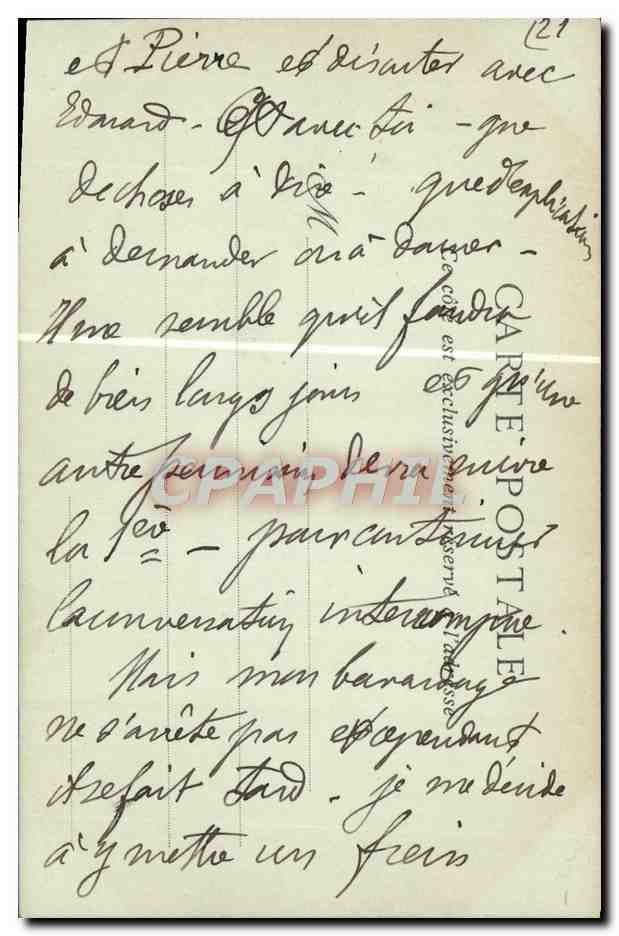 (21
et Pierre et discuter avec
Edouard - Et avec toi - que
de choses à dire - que d'explications
à demander ou à donner -
Il me semble qu'il faudra
de biens longs jours et qu'une
autre permission devra suivre
la 1ère - pour continuer
la conversation interrompue.
Mais mon bavardage
ne s'arrête pas et cependant
il se fait tard - je me décide
à y mettre un frein
CARTE POSTALE
Ce côté est exclusivement réservé à l'adresse
M
CPAPHIL